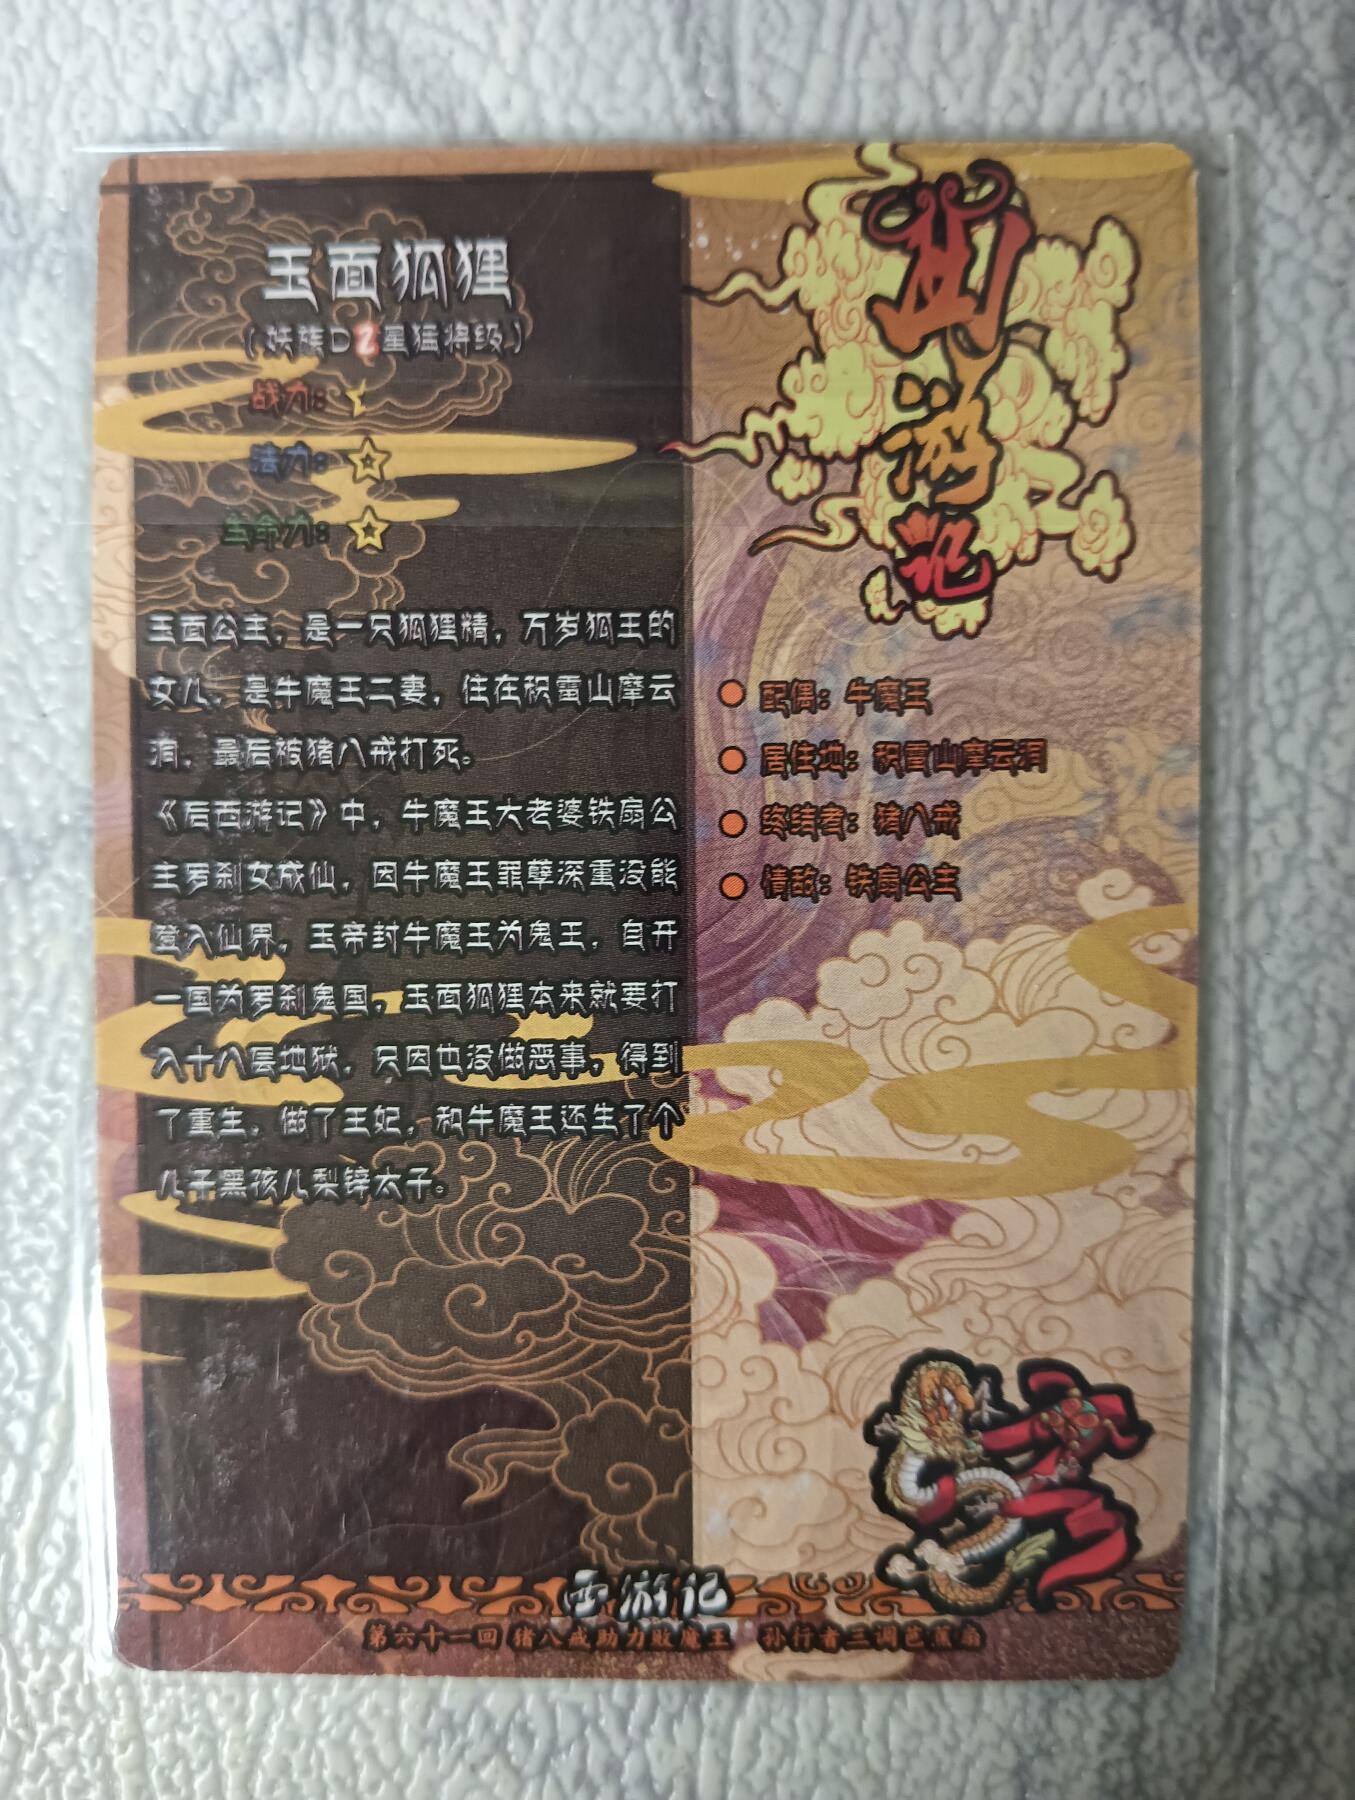 玉面狐狸
(妖族D2星猛将级)
战力:
法力:
生命力:
玉面公主，是一只狐狸精，万岁狐王的
女儿，是牛魔王二妻，住在积雷山摩云
洞，最后被猪八戒打死。
《后西游记》中，牛魔王大老婆铁扇公
主罗刹女成仙，因牛魔王罪孽深重没能
登入仙界，玉帝封牛魔王为鬼王，自开
一国为罗刹鬼国，玉面狐狸本来就要打
入十八层地狱，只因也没做恶事，得到
了重生，做了王妃，和牛魔王还生了个
儿子黑孩儿梨锌太子。
西游记
配偶：牛魔王
居住地：积雷山摩云洞
终结者：猪八戒
情敌：铁扇公主
西游记
第六十一回 猪八戒助力败魔王 孙行者三调芭蕉扇